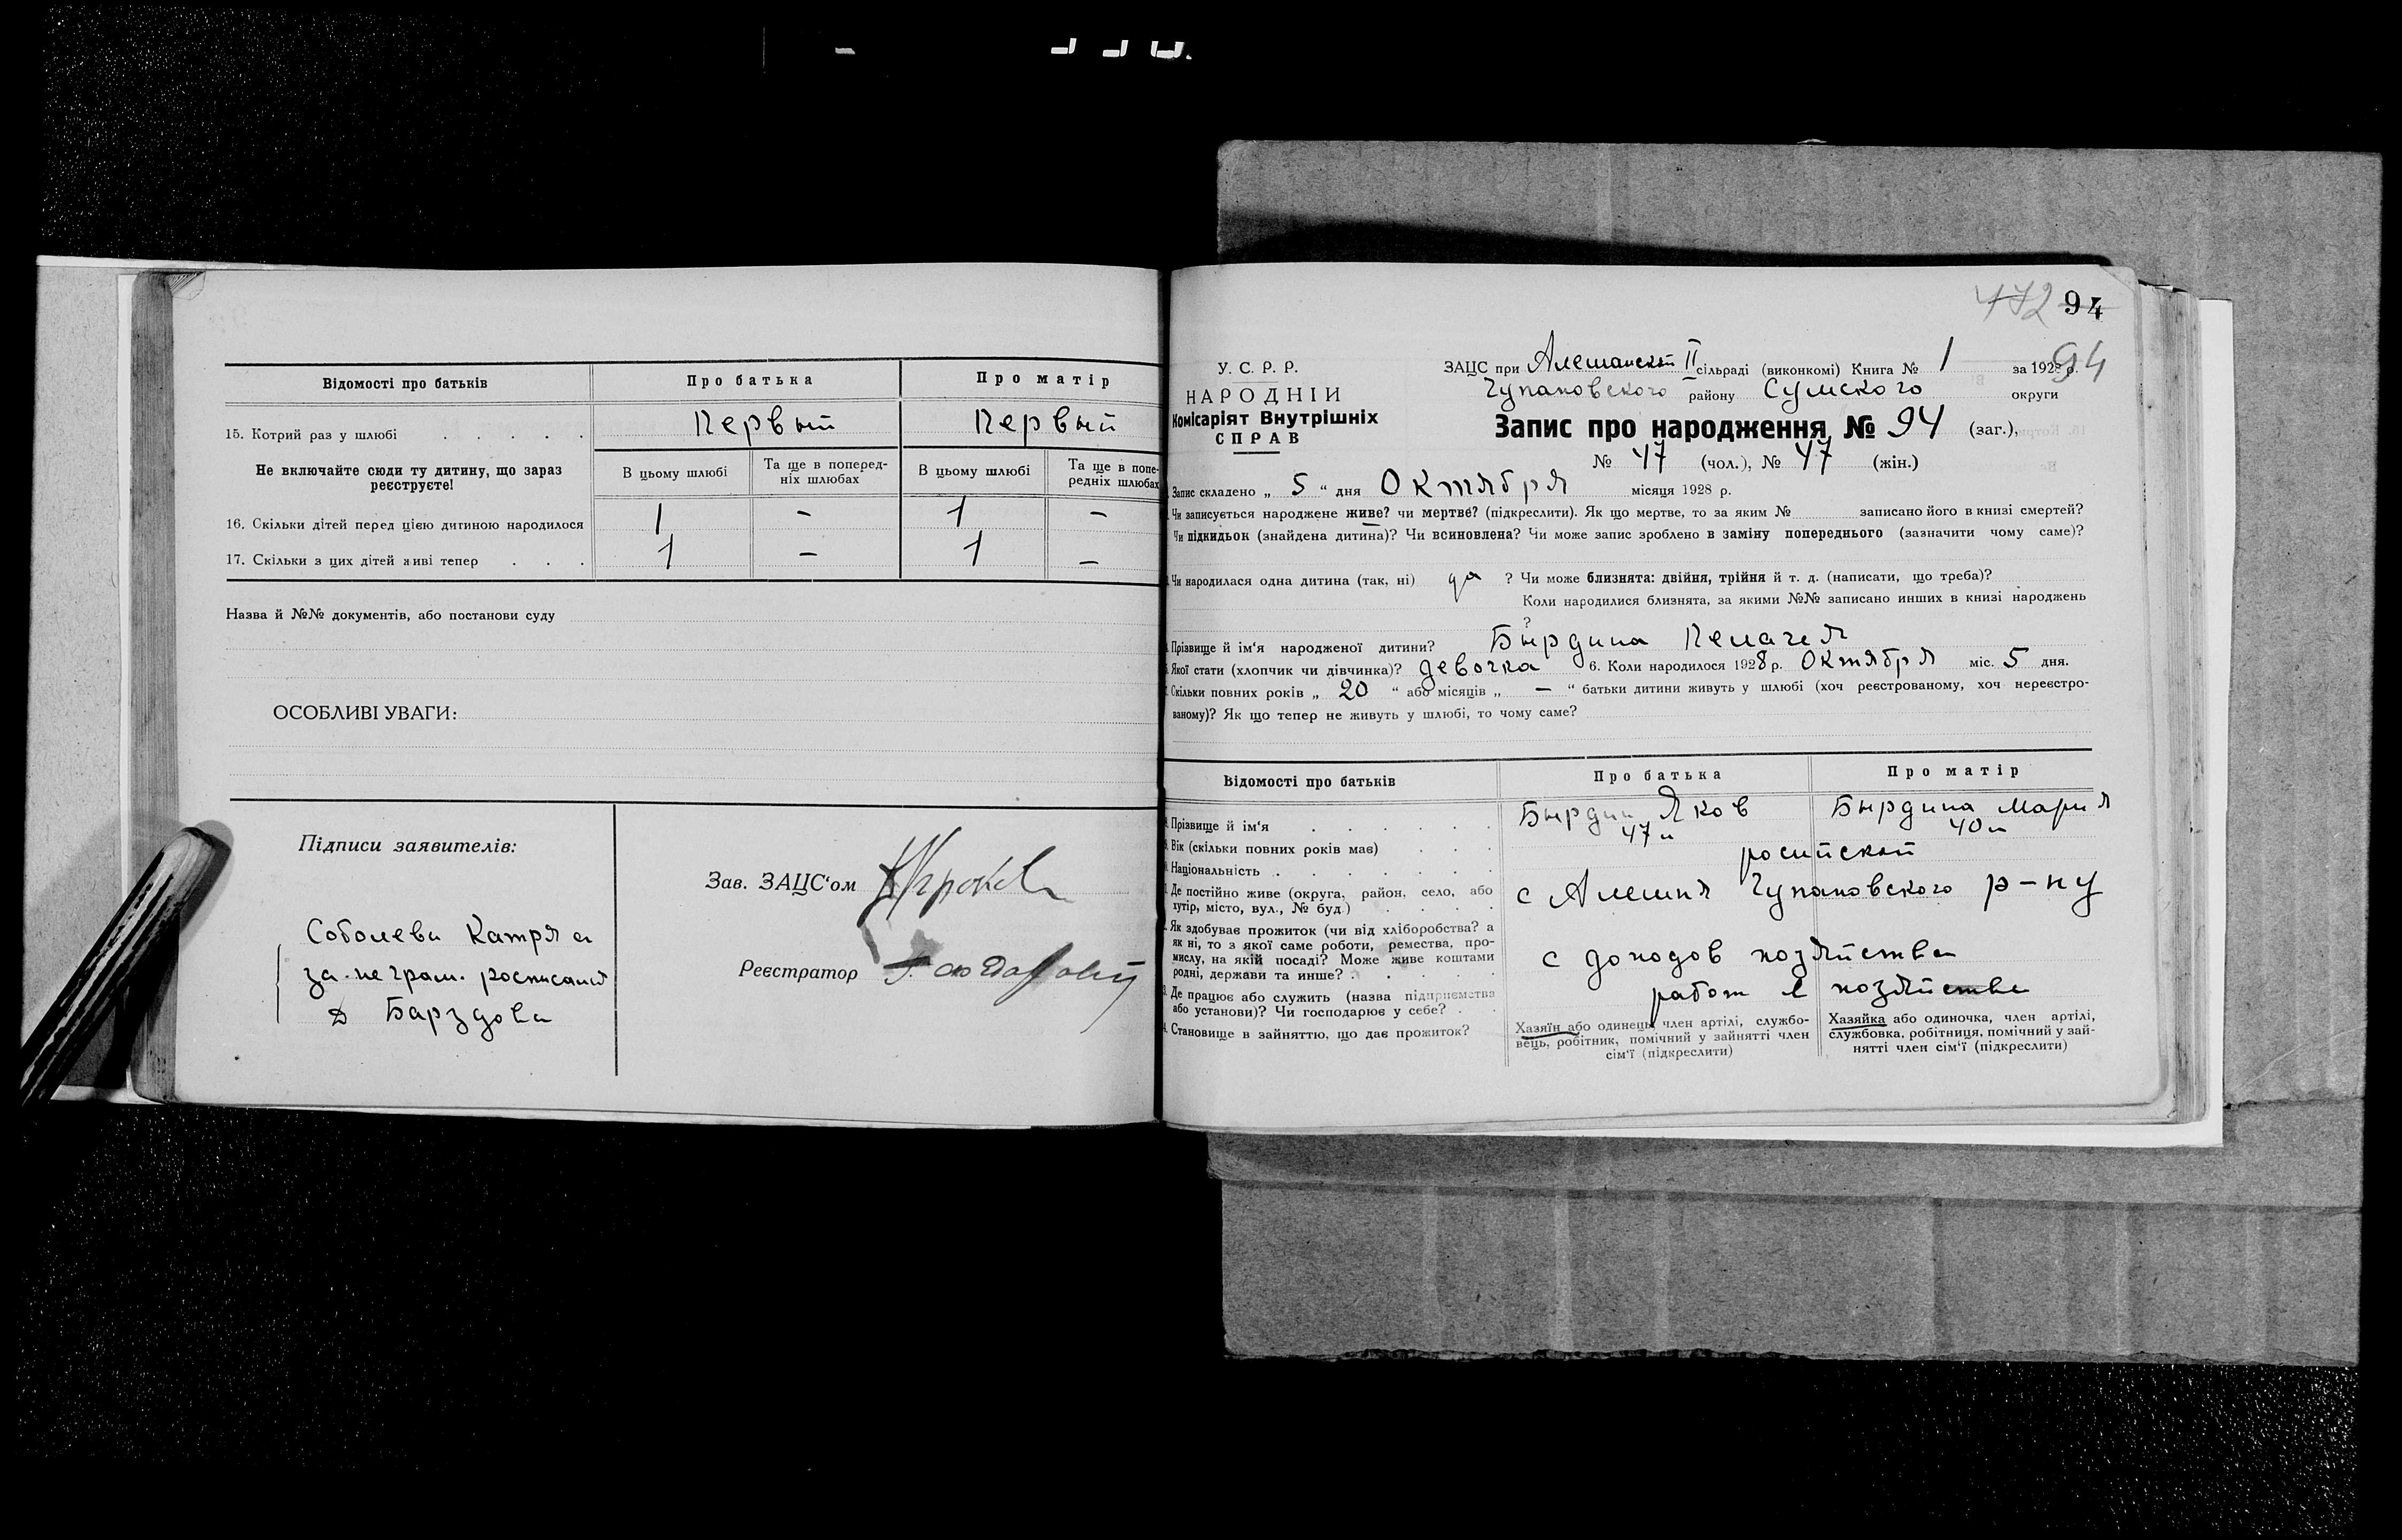 Відомості про батьків
Про батька
Про матір
15. Котрий раз у шлюбі . . . . .
Первый
Первый
Не включайте сюди ту дитину, що зараз реєструєте!
В цьому шлюбі
Та ще в поперед-
ніх шлюбах
В цьому шлюбі
Та ще в попе-
редніх шлюбах
16. Скільки дітей перед цією дитиною народилося
1 – 1 –
17. Скільки з цих дітей живі тепер . . .
1 – 1 –
Назва й №№ документів, або постанови суду
ОСОБЛИВІ УВАГИ:
Підписи заявителів:
Соболева Катря а
за неграм. росписалсь
Барздова
Зав. ЗАЦС'ом
Реєстратор
472 94
У. С. Р. Р.
НАРОДНІЙ
Комісаріят Внутрішніх
СПРАВ
ЗАЦС при Алешанской II сільраді (виконкомі) Книга № 1 за 1928 р. 94
Чупаховского району Сумского округи
Запис про народження № 94 (заг.),
№ 47 (чол.), № 47 (жін.)
Запис складено „ 5 “ дня Октября місяця 1928 р.
Чи записується народжене живе? чи мертве? (підкреслити). Як що мертве, то за яким № записано його в книзі смертей?
Чи підкидьок (знайдена дитина)? Чи всиновлена? Чи може запис зроблено в заміну попереднього (зазначити чому саме)?
Чи народилася одна дитина (так, ні) да ? Чи може близнята: двійня, трійня й т. д. (написати, що треба)?
Коли народилися близнята, за якими №№ записано инших в книзі народжень
?
Прізвище й ім'я народженої дитини? Бырдина Пелагея
Якої стати (хлопчик чи дівчинка)? девочка 6. Коли народилося 1928 р. Октября міс. 5 дня.
Скільки повних років „ 20 “ або місяців „ – “ батьки дитини живуть у шлюбі (хоч реєстрованому, хоч нереєстро-
ваному)? Як що тепер не живуть у шлюбі, то чому саме?
Відомості про батьків
Про батька
Про матір
Прізвище й ім'я . . . . .
Бырдин Яков
Бырдина Мария
Вік (скільки повних років має) . . .
47 л
40 л
Національність . . . . . . .
росийской
Де постійно живе (округа, район, село, або
хутір, місто, вул., № буд.) . . . .
с Алешня Чупаховского р-ну
Як здобуває прожиток (чи від хліборобства? а
як ні, то з якої саме роботи, ремества, про-
мислу, на якій посаді? Може живе коштами
родні, держави та инше? . . . . .
с доходов хозяйства
Де працює або служить (назва підприємства
або установи)? Чи господарює у себе? . .
работ в хозяйстве
Становище в зайняттю, що дає прожиток?
Хазяїн або одинець, член артілі, службо-
вець, робітник, помічний у зайнятті член
сім'ї (підкреслити)
Хазяйка або одиночка, член артілі,
службовка, робітниця, помічний у зай-
нятті член сім'ї (підкреслити)